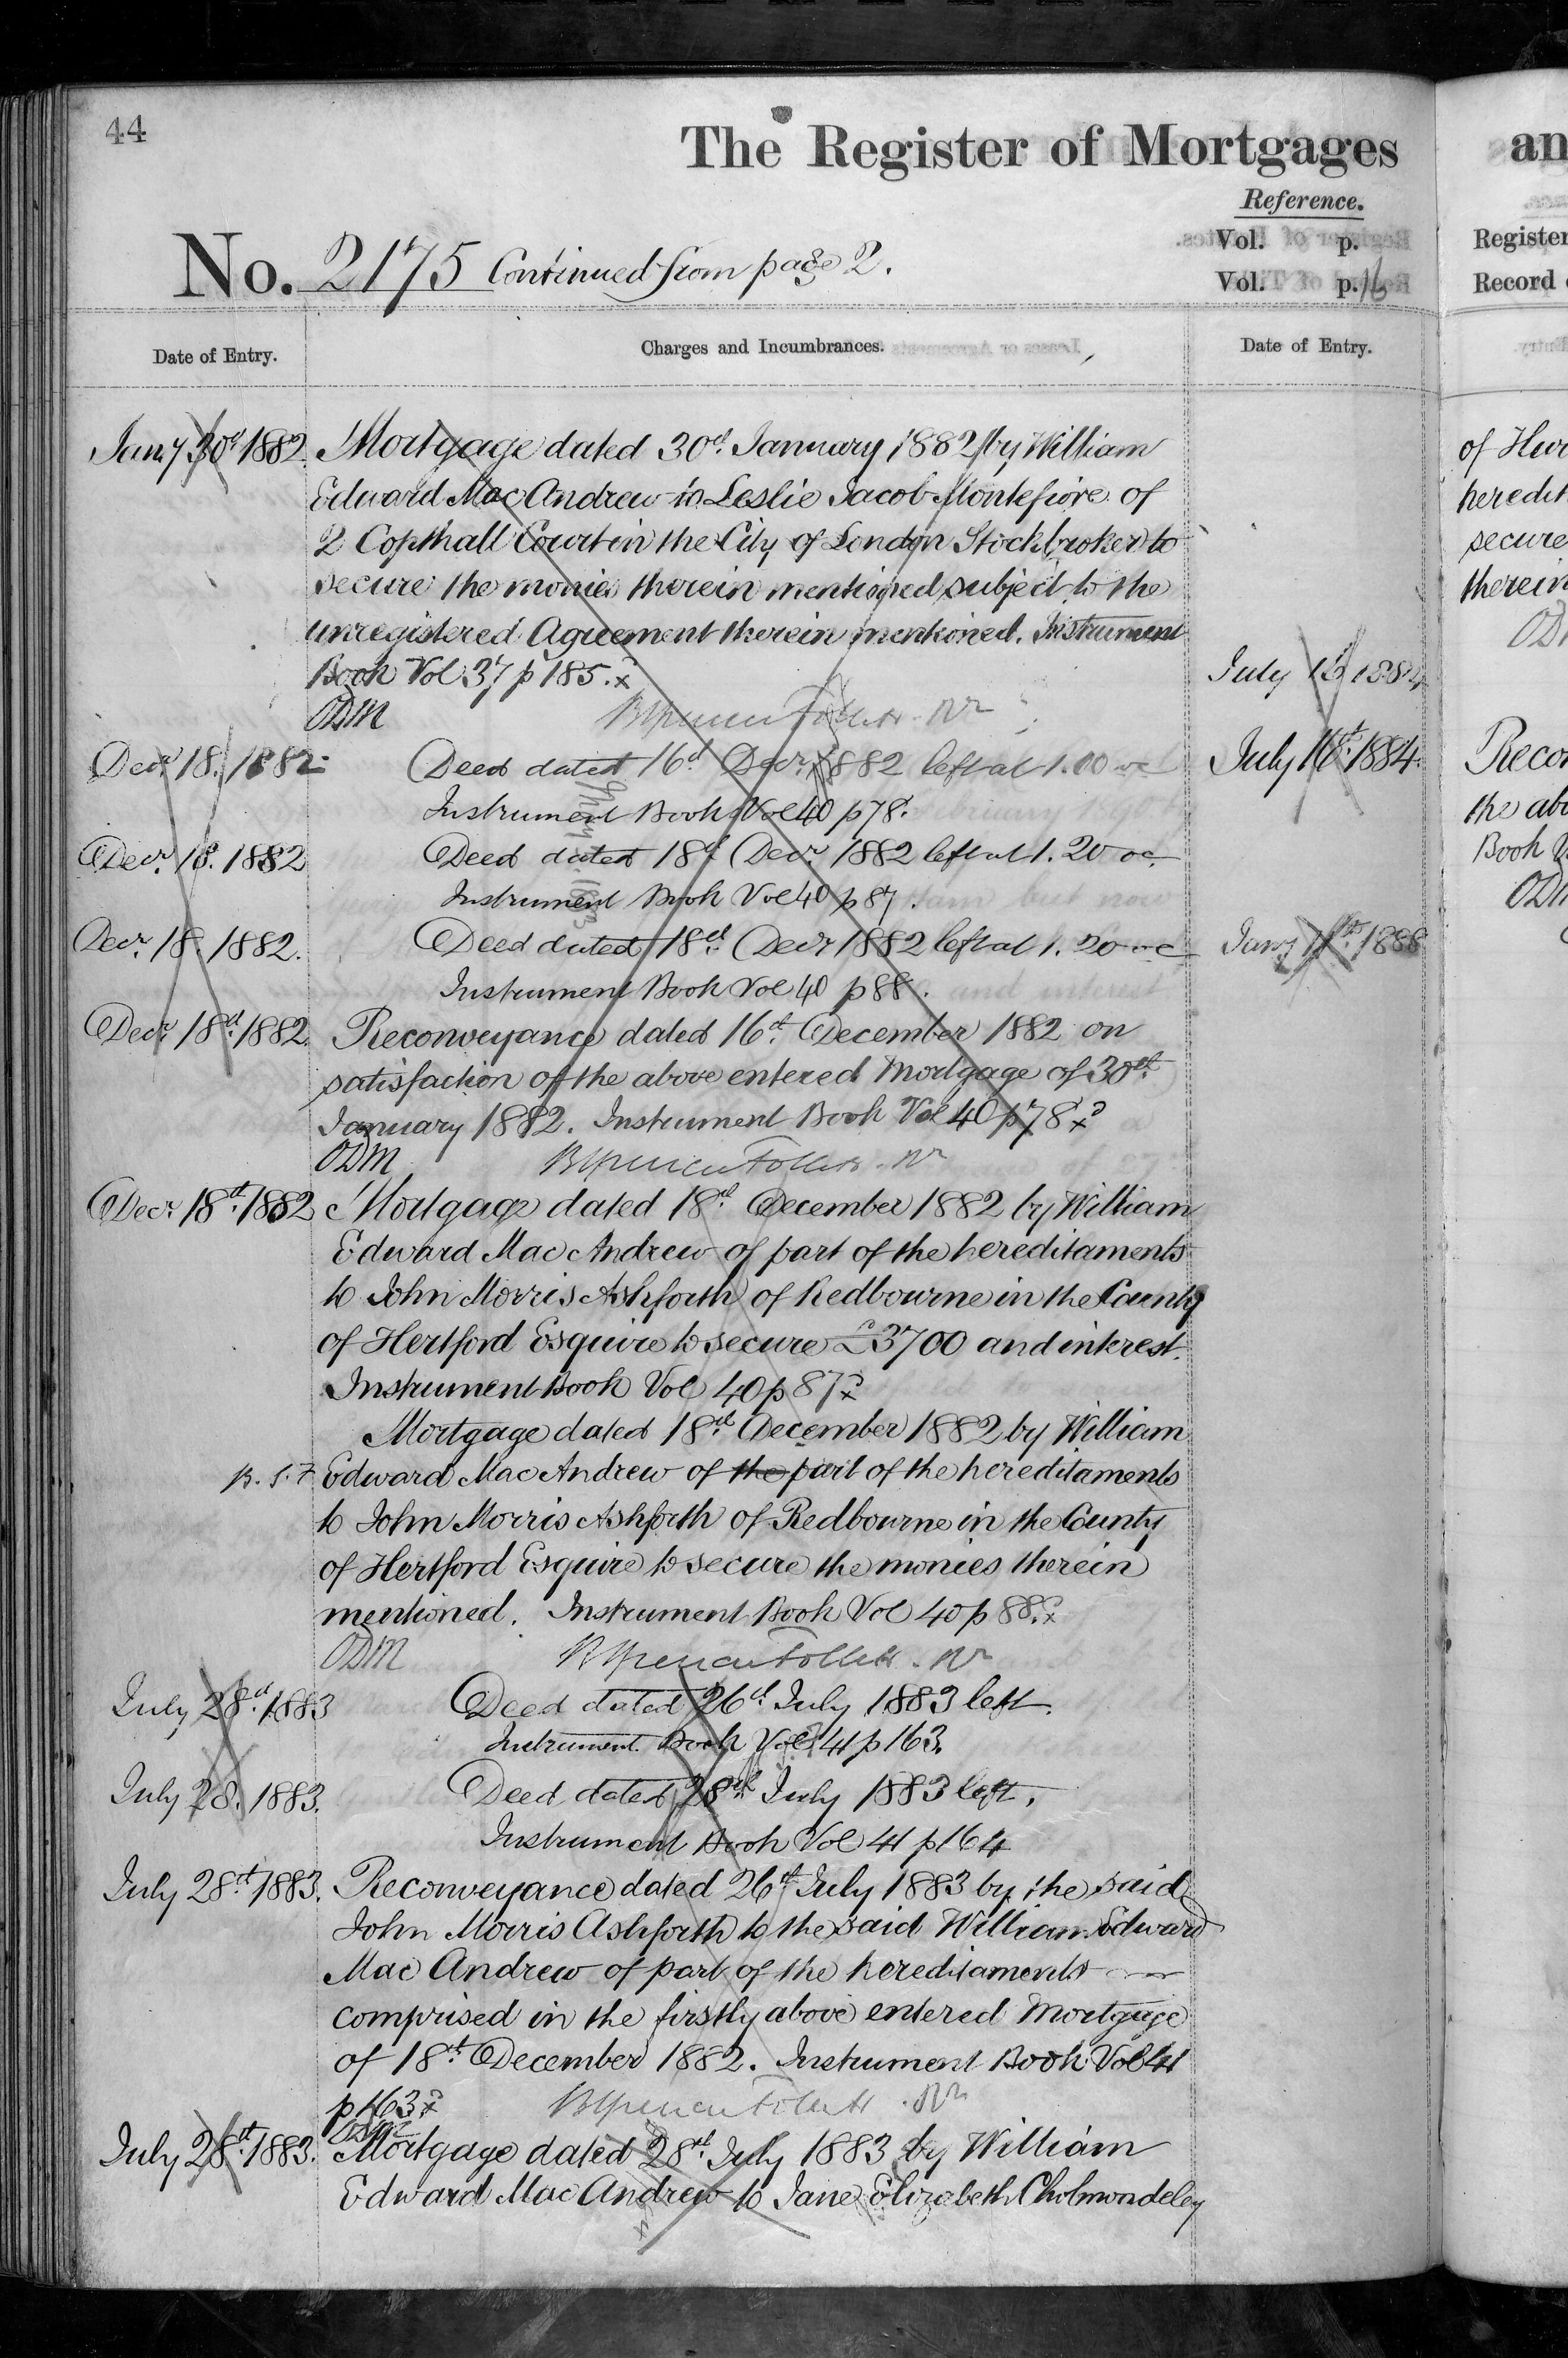 44
The Register of Mortgages
Reference.
Vol. p.
Vol. p. 16
No. 2175 Continued from page 2.
Date of Entry.
Charges and Incumbrances.
Date of Entry.
Jany 30th 1882. Mortgage dated 30th January 1882 by William
Edward Mac Andrew to Leslie Jacob Montefiore of
2 Copthall Court in the City of London Stockbroker to
secure the monies therein mentioned subject to the
unregistered Agreement therein mentioned. Instrument
Book Vol 37 p 185.
ODM
Decr 18. 1882 Deed dated 16th Decr 1882 left at 1.00 oc
Instrument Book Vol 40 p 78.
Decr 18. 1882 Deed dated 18th Decr 1882 left at 1.20 oc
Instrument Book Vol 40 p 87.
Decr 18. 1882. Deed dated 18th Decr 1882 left at 1.20 oc
Instrument Book Vol 40 p 88.
Decr 18th 1882. Reconveyance dated 16th December 1882 on
satisfaction of the above entered Mortgage of 30th
January 1882. Instrument Book Vol 40 p 78
ODM
Decr 18th 1882 Mortgage dated 18th December 1882 by William
Edward Mac Andrew of part of the hereditaments
to John Morris Ashforth of Redbourne in the County
of Hertford Esquire to secure £3700 and interest.
Instrument Book Vol 40 p 87
Mortgage dated 18th December 1882 by William
B.S.F. Edward Mac Andrew of the part of the hereditaments
to John Morris Ashforth of Redbourne in the County
of Hertford Esquire to secure the monies therein
mentioned. Instrument Book Vol 40 p 88.
ODM
July 28th 1883 Deed dated 26th July 1883 left.
Instrument Book Vol 41 p 163.
July 28. 1883. Deed dated 28th July 1883 left.
Instrument Book Vol 41 p 164
July 28th 1883. Reconveyance dated 26th July 1883 by the said
John Morris Ashforth to the said William Edward
Mac Andrew of part of the hereditaments
comprised in the firstly above entered Mortgage
of 18th December 1882. Instrument Book Vol 41
p 163.
ODM
July 28th 1883. Mortgage dated 28th July 1883 by William
Edward Mac Andrew to Jane Elizabeth Cholmondeley
July 16 1884
July 16th 1884.
Jany 11th 1888
an
Register
Record
hereditt
secure
therein
ODM
Recon
the abo
Book V
ODM